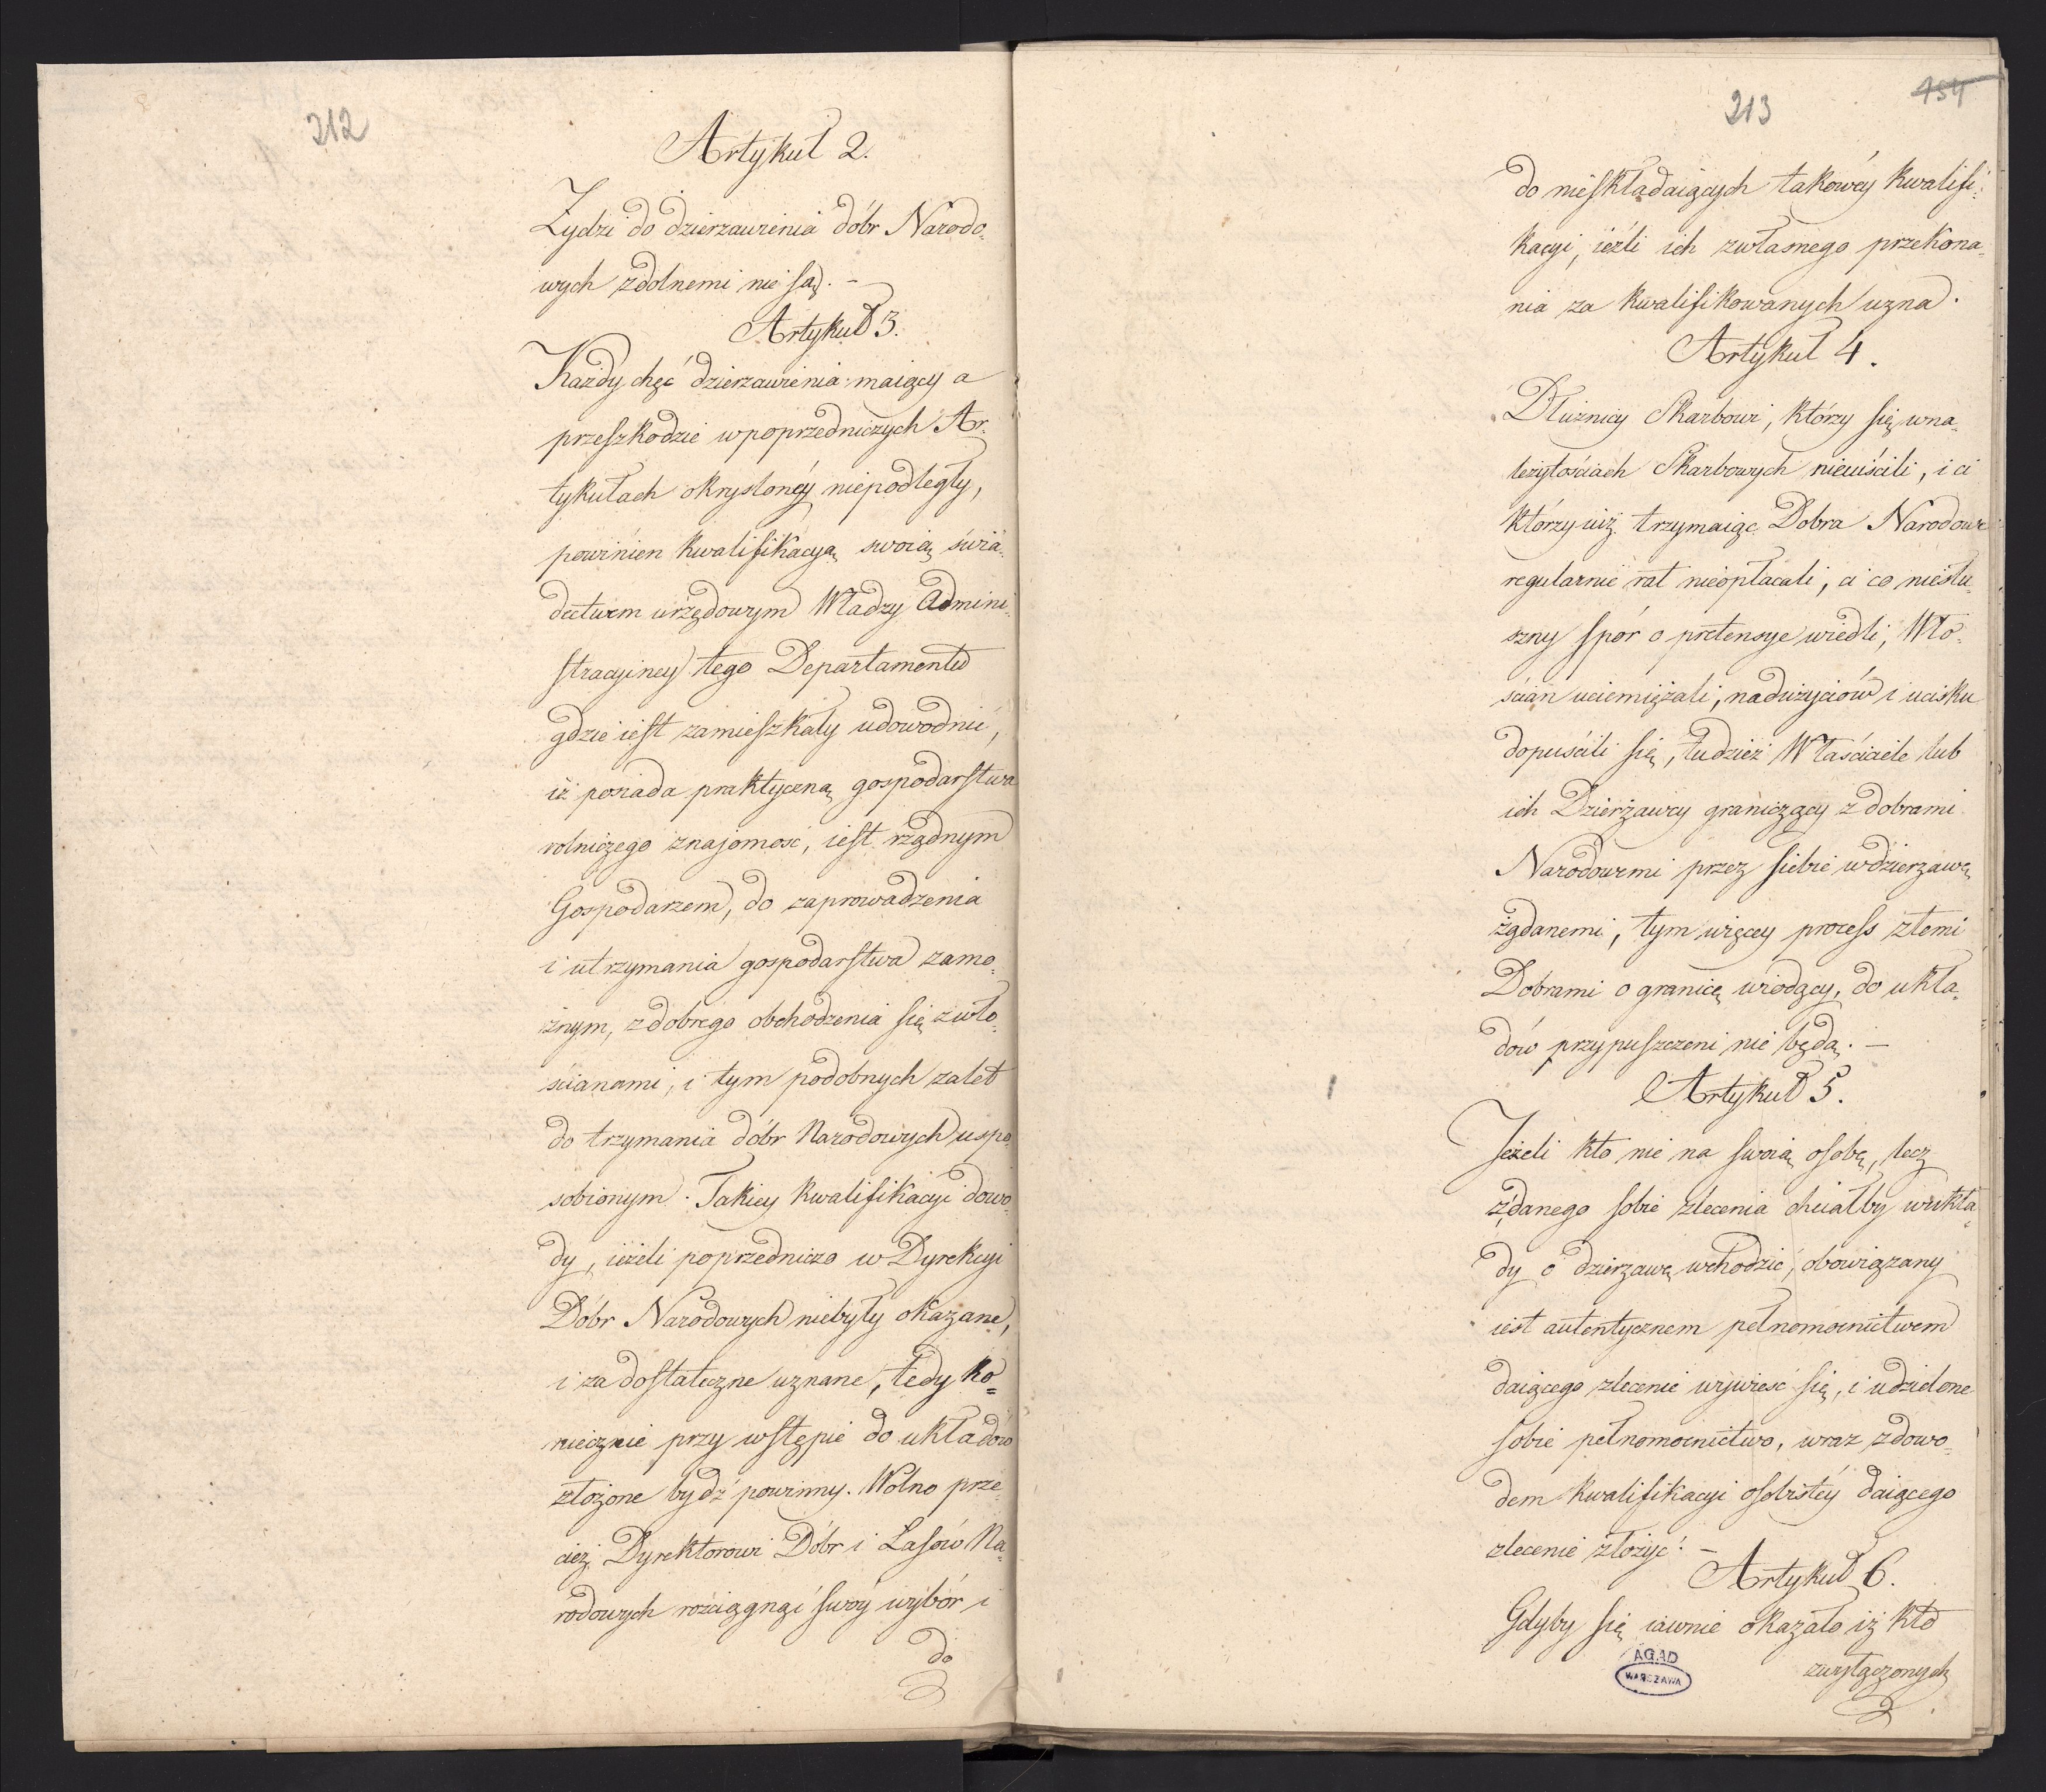 212
Artykuł 2.
Żydzi do dzierzawienia dóbr Narodo-
wych zdolnemi nie są. -
Artykuł 3.
Każdy chęć dzierzawienia maiący a
przeszkodzie w poprzedniczych Ar-
tykułach okrysloney niepodległy,
powinien kwalifikacyą swoią świa-
dectwem urzędowym Władzy Admini-
stracyiney tego Departamentu
gdzie iest zamieszkały udowodnić,
iż posiada praktyczną gospodarstwa
rolniczego znajomosć, iest rządnym
Gospodarzem, do zaprowadzenia
i utrzymania gospodarstwa zamo-
żnym, z dobrego obchodzenia się z wło-
ścianami, i tym podobnych zalet
do trzymania dóbr Narodowych uspo-
sobionym. Takiey kwalifikacyi dowo-
dy, ieżeli poprzedniczo w Dyrekcyi
Dóbr Narodowych niebyły okazane,
i za dostateczne uznane, tedy ko-
niecznie przy wstępie do układów
złożone bydź powinny. Wolno prze-
cież Dyrektorowi Dóbr i Lasów Na-
rodowych rościągnąć swóy wybór i
do
213
454
do nieskładaiących takowéy kwalifi-
kacyi, ieźli ich z własnego przekona-
nia za kwalifikowanych uzna.
Artykuł 4.
Dłużnicy Skarbowi, którzy się w na-
leżytościach Skarbowych nieuiścili, i ci
którzy iuż trzymaiąc Dobra Narodowe
regularnie rat nieopłacali, ci co niesłu-
szny spór o pretensye wiedli, Wło-
ścian uciemiężali, nadużyciów i ucisku
dopuścili się, tudzież Właściciele lub
ich Dzierżawcy graniczący z dobrami
Narodowemi przez siebie w dzierzawę
żądanemi, tym więcey process z temi
Dobrami o granicę wiodący, do ukła-
dów przypuszczeni nie będą. -
Artykuł 5.
Jeżeli kto nie na swoią osobę, lecz
z danego sobie zlecenia chciałby w ukła-
dy o dzierzawę wchodzić, obowiązany
iest autentycznem pełnomocnictwem
daiącego zlecenie wywieść się, i udzielone
sobie pełnomocnictwo, wraz z dowo-
dem kwalifikacyi osobistéy daiącego
zlecenie złożyć. -
Artykuł 6.
Gdyby się iawnie okazało iż kto
z wyłączonych
AGAD
WARSZAWA